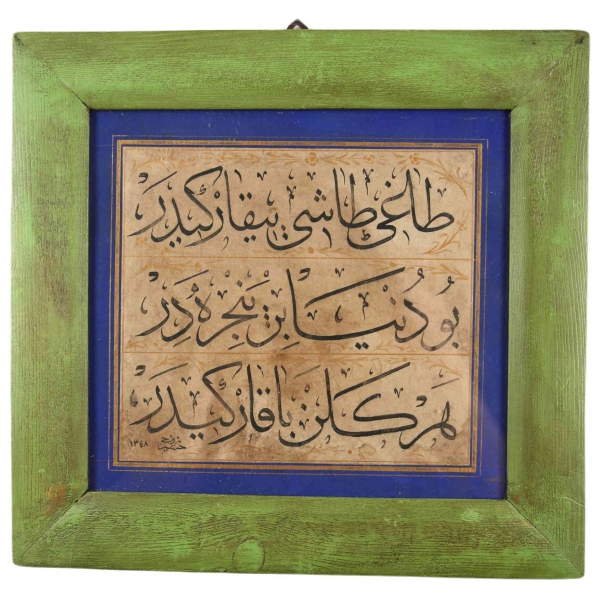 طاغی طاشی ییقار کیدر
بو دنیا بر پنجره در
هر کلن باقار کیدر
١٣٤٨